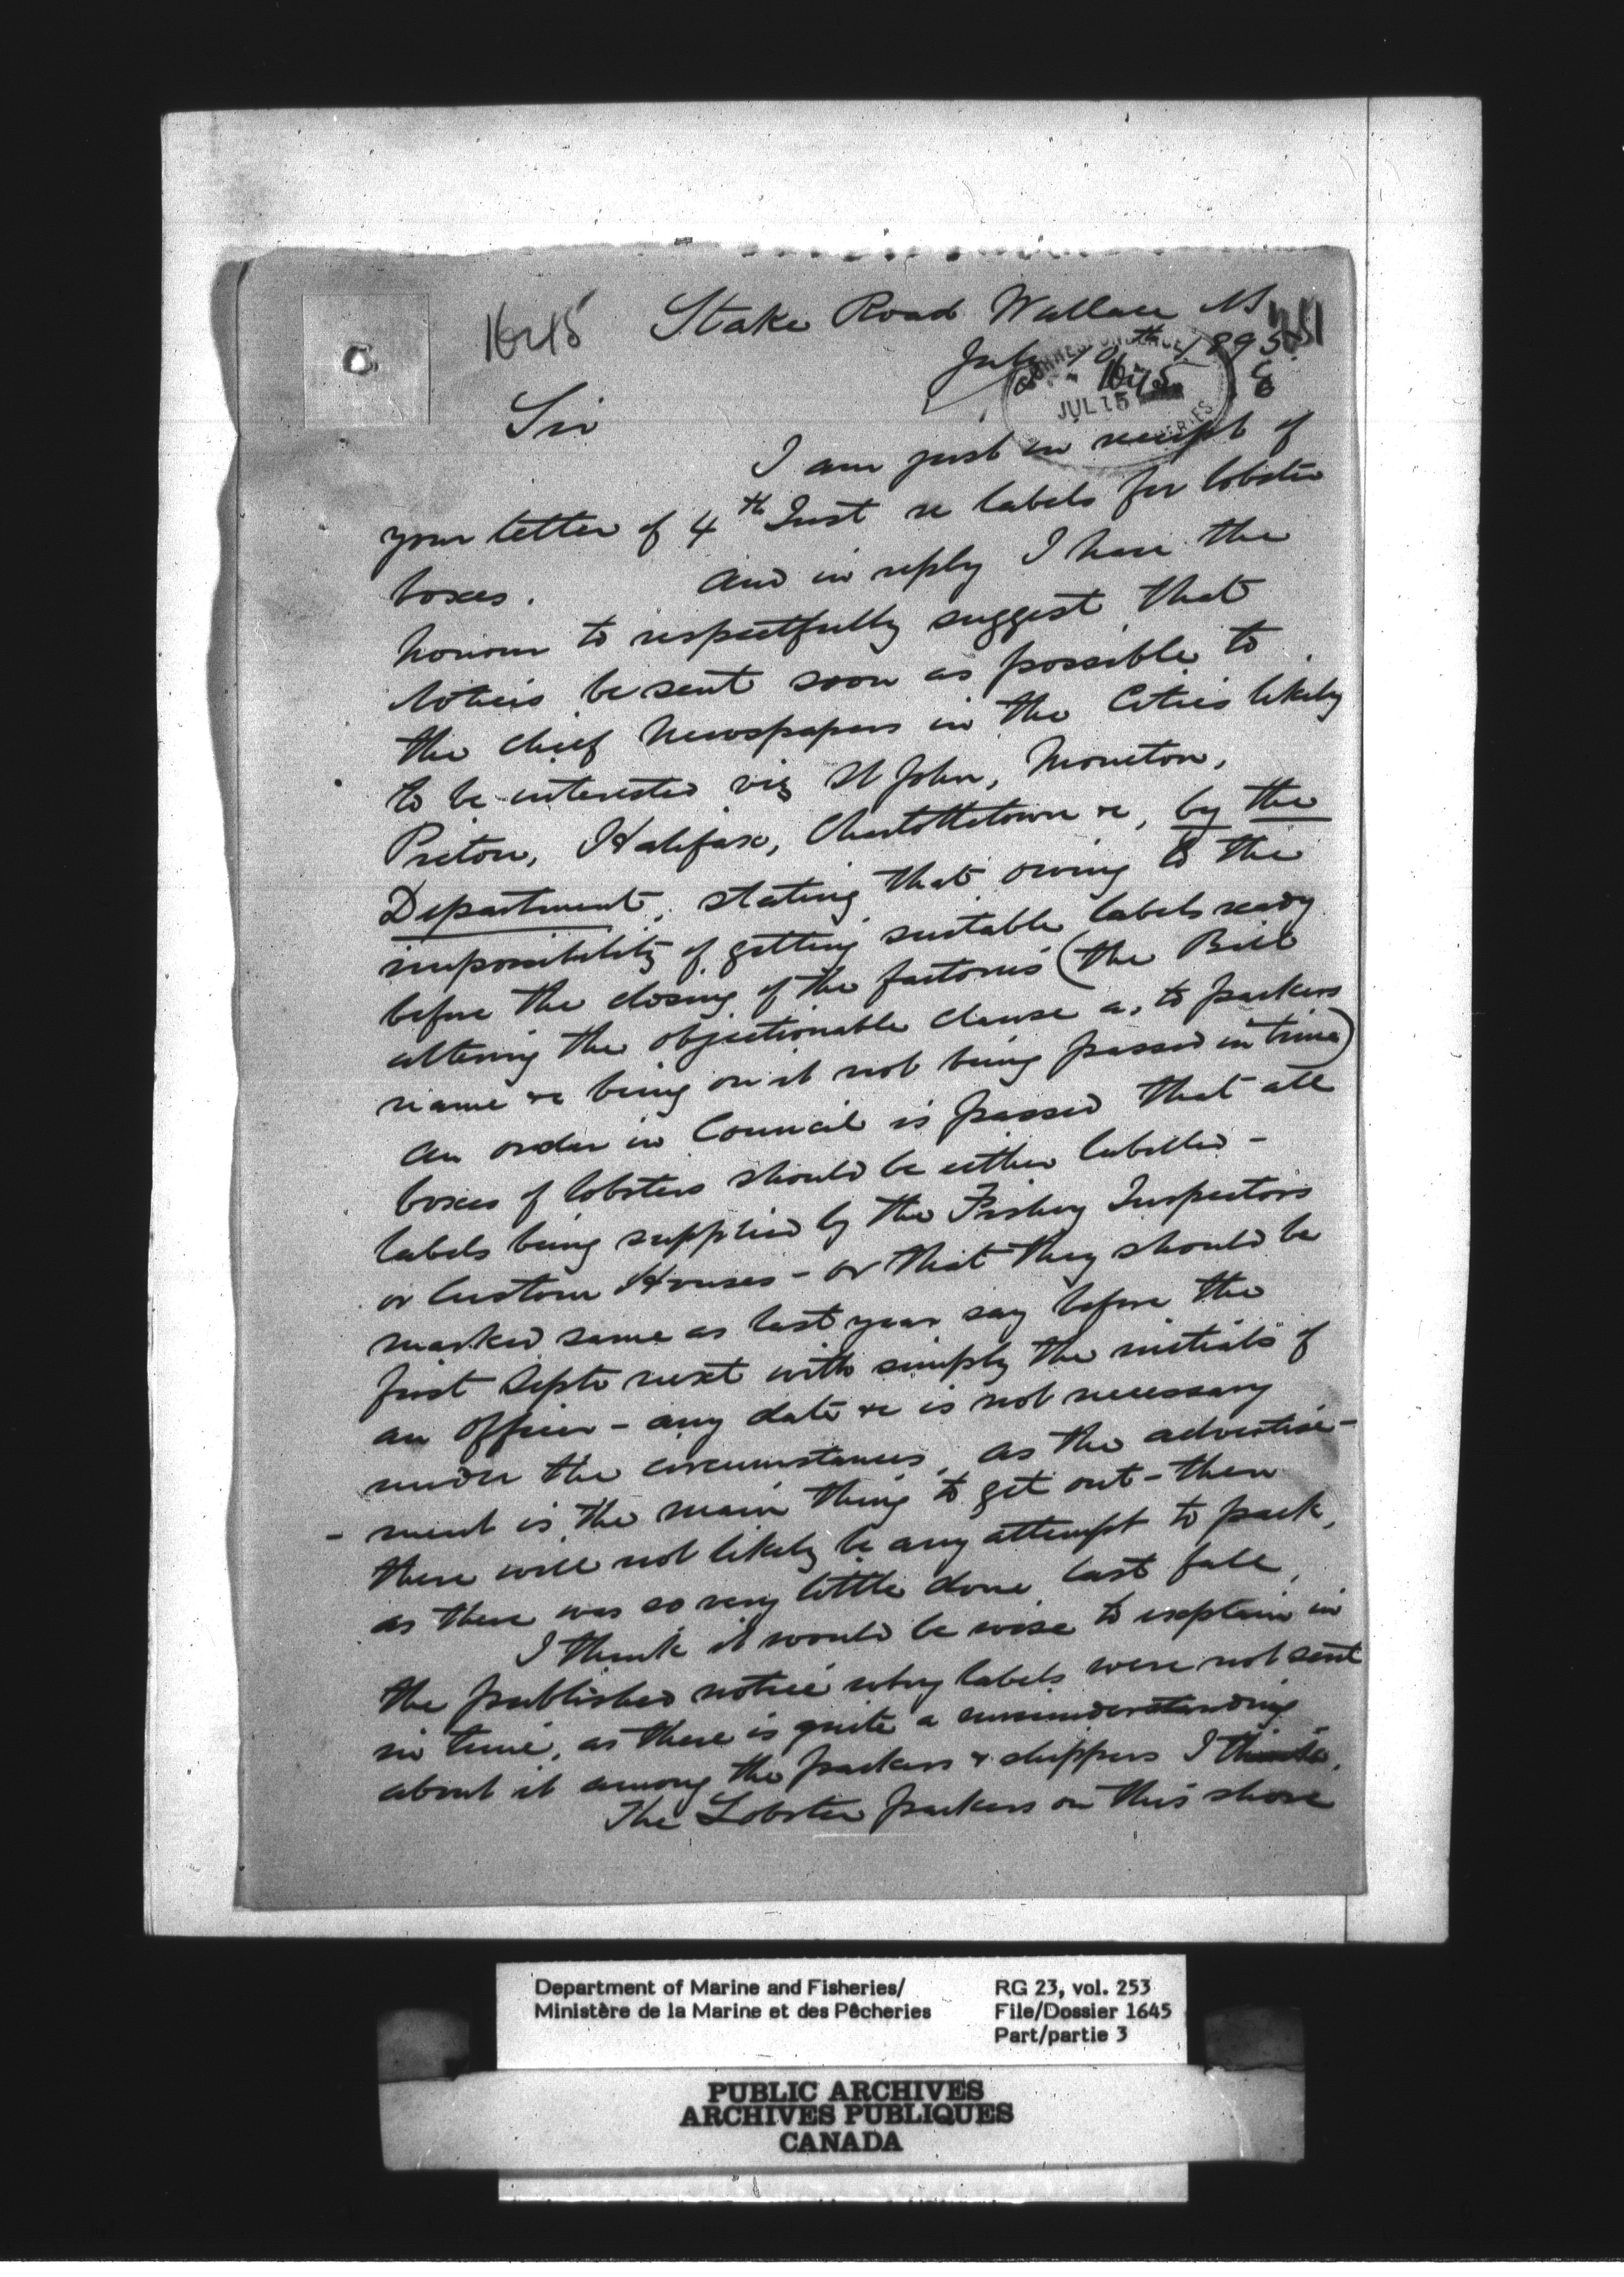 1645 Stake Road Wallace NS
July 10th 1895
CORRESPONDENCE
1645
JUL 15
Sir
I am just in receipt of
your letter of 4th Inst re labels for lobster
boxes. And in reply I have the
honour to respectfully suggest that
notices be sent soon as possible to
the chief Newspapers in the Cities likely
to be interested viz St John, Moncton,
Pictou, Halifax, Charlottetown &c, by the
Department, stating that owing to the
impossibility of getting suitable labels ready
before the closing of the factories (the Bill
altering the objectionable clause as to packers
name &c being on it not being passed in time)
an order in Council is passed that all
boxes of lobsters should be either labelled -
labels being supplied by the Fishery Inspectors
or Custom Houses - or that they should be
marked same as last year say before the
first Septr next with simply the initials of
an officer - any date &c is not necessary
under the circumstances, as the advertise-
- ment is the main thing to get out - then
there will not likely be any attempt to pack,
as there was so very little done last fall,
I think it would be wise to explain in
the published notice why labels were not sent
in time, as there is quite a misunderstanding
about it among the packers & shippers I think.
The Lobster packers on this shore
Department of Marine and Fisheries/
Ministère de la Marine et des Pêcheries
RG 23, vol. 253
File/Dossier 1645
Part/partie 3
PUBLIC ARCHIVES
ARCHIVES PUBLIQUES
CANADA